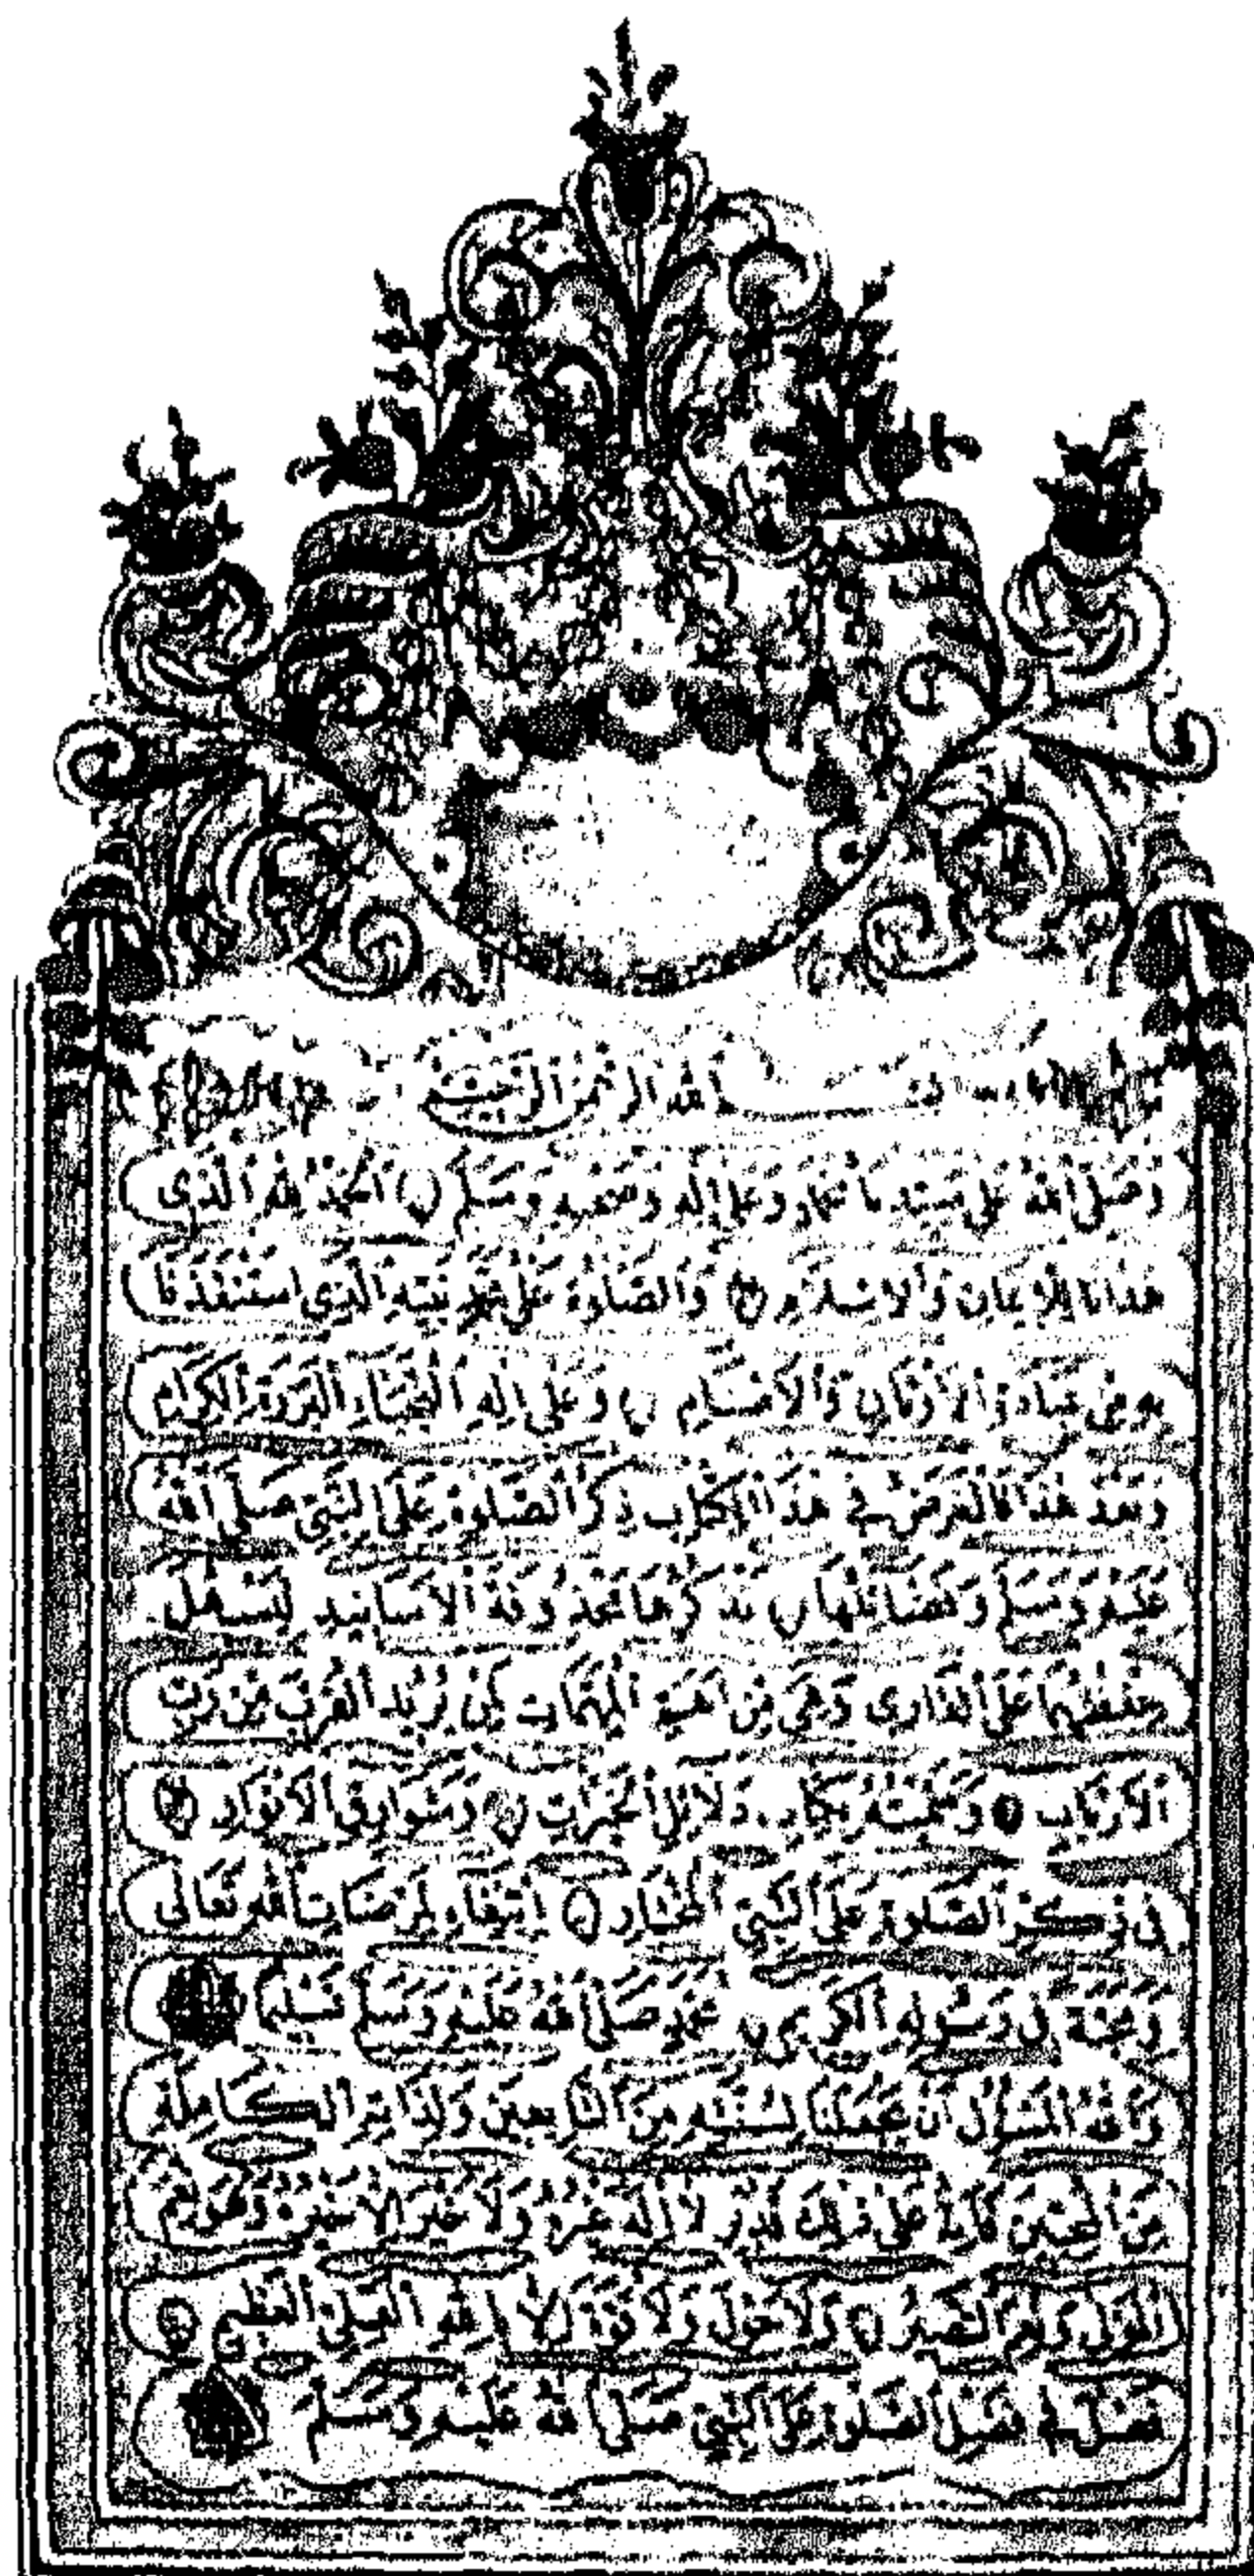 بِسْمِ اللهِ الرَّحْمٰنِ الرَّحِيمِ
وَصَلَّى اللهُ عَلَى سَيِّدِنَا مُحَمَّدٍ وَعَلَى اٰلِهِ وَصَحْبِهِ وَسَلَّمَ اَلْحَمْدُ لِلّٰهِ الَّذِي
هَدَانَا لِلْإِيمَانِ وَالْإِسْلَامِ وَالصَّلٰوةُ عَلَى مُحَمَّدٍ نَبِيِّهِ الَّذِي اسْتَنْقَذَنَا
بِهِ مِنْ عِبَادَةِ الْأَوْثَانِ وَالْأَصْنَامِ وَعَلَى اٰلِهِ النُّجَبَاءِ الْبَرَرَةِ الْكِرَامِ
وَبَعْدَ هٰذَا فَالْغَرَضُ فِي هٰذَا الْكِتَابِ ذِكْرُ الصَّلٰوةِ عَلَى النَّبِيِّ صَلَّى اللهُ
عَلَيْهِ وَسَلَّمَ وَفَضَائِلُهَا نَذْكُرُهَا مَحْذُوفَةَ الْأَسَانِيدِ لِيَسْهُلَ
حِفْظُهَا عَلَى الْقَارِي وَهِيَ مِنْ اَهَمِّ الْمُهِمَّاتِ لِمَنْ يُرِيدُ الْقُرْبَ مِنْ رَبِّ
الْأَرْبَابِ وَسَمَّيْتُهُ بِكِتَابِ دَلَائِلِ الْخَيْرَاتِ وَشَوَارِقِ الْأَنْوَارِ
فِي ذِكْرِ الصَّلٰوةِ عَلَى النَّبِيِّ الْمُخْتَارِ اِبْتِغَاءً لِمَرْضَاتِ اللهِ تَعَالَى
وَمَحَبَّةً فِي رَسُولِهِ الْكَرِيمِ مُحَمَّدٍ صَلَّى اللهُ عَلَيْهِ وَسَلَّمَ تَسْلِيمًا
وَاللهُ الْمَسْئُولُ اَنْ يَجْعَلَنَا لِسُنَّتِهِ مِنَ التَّابِعِينَ وَلِذَاتِهِ الْكَامِلَةِ
مِنَ الْمُحِبِّينَ فَاِنَّهُ عَلَى ذٰلِكَ قَدِيرٌ لَا اِلٰهَ غَيْرُهُ وَلَا خَيْرَ اِلَّا خَيْرُهُ وَهُوَ نِعْمَ
الْمَوْلٰى وَنِعْمَ النَّصِيرُ وَلَا حَوْلَ وَلَا قُوَّةَ اِلَّا بِاللهِ الْعَلِيِّ الْعَظِيمِ
فَصْلٌ فِي فَضْلِ الصَّلٰوةِ عَلَى النَّبِيِّ صَلَّى اللهُ عَلَيْهِ وَسَلَّمَ